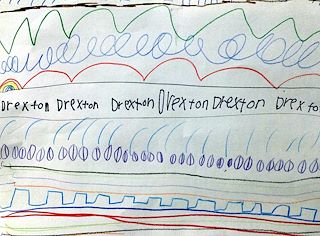 Drexton Drexton Drexton Drexton Drexton Drexto